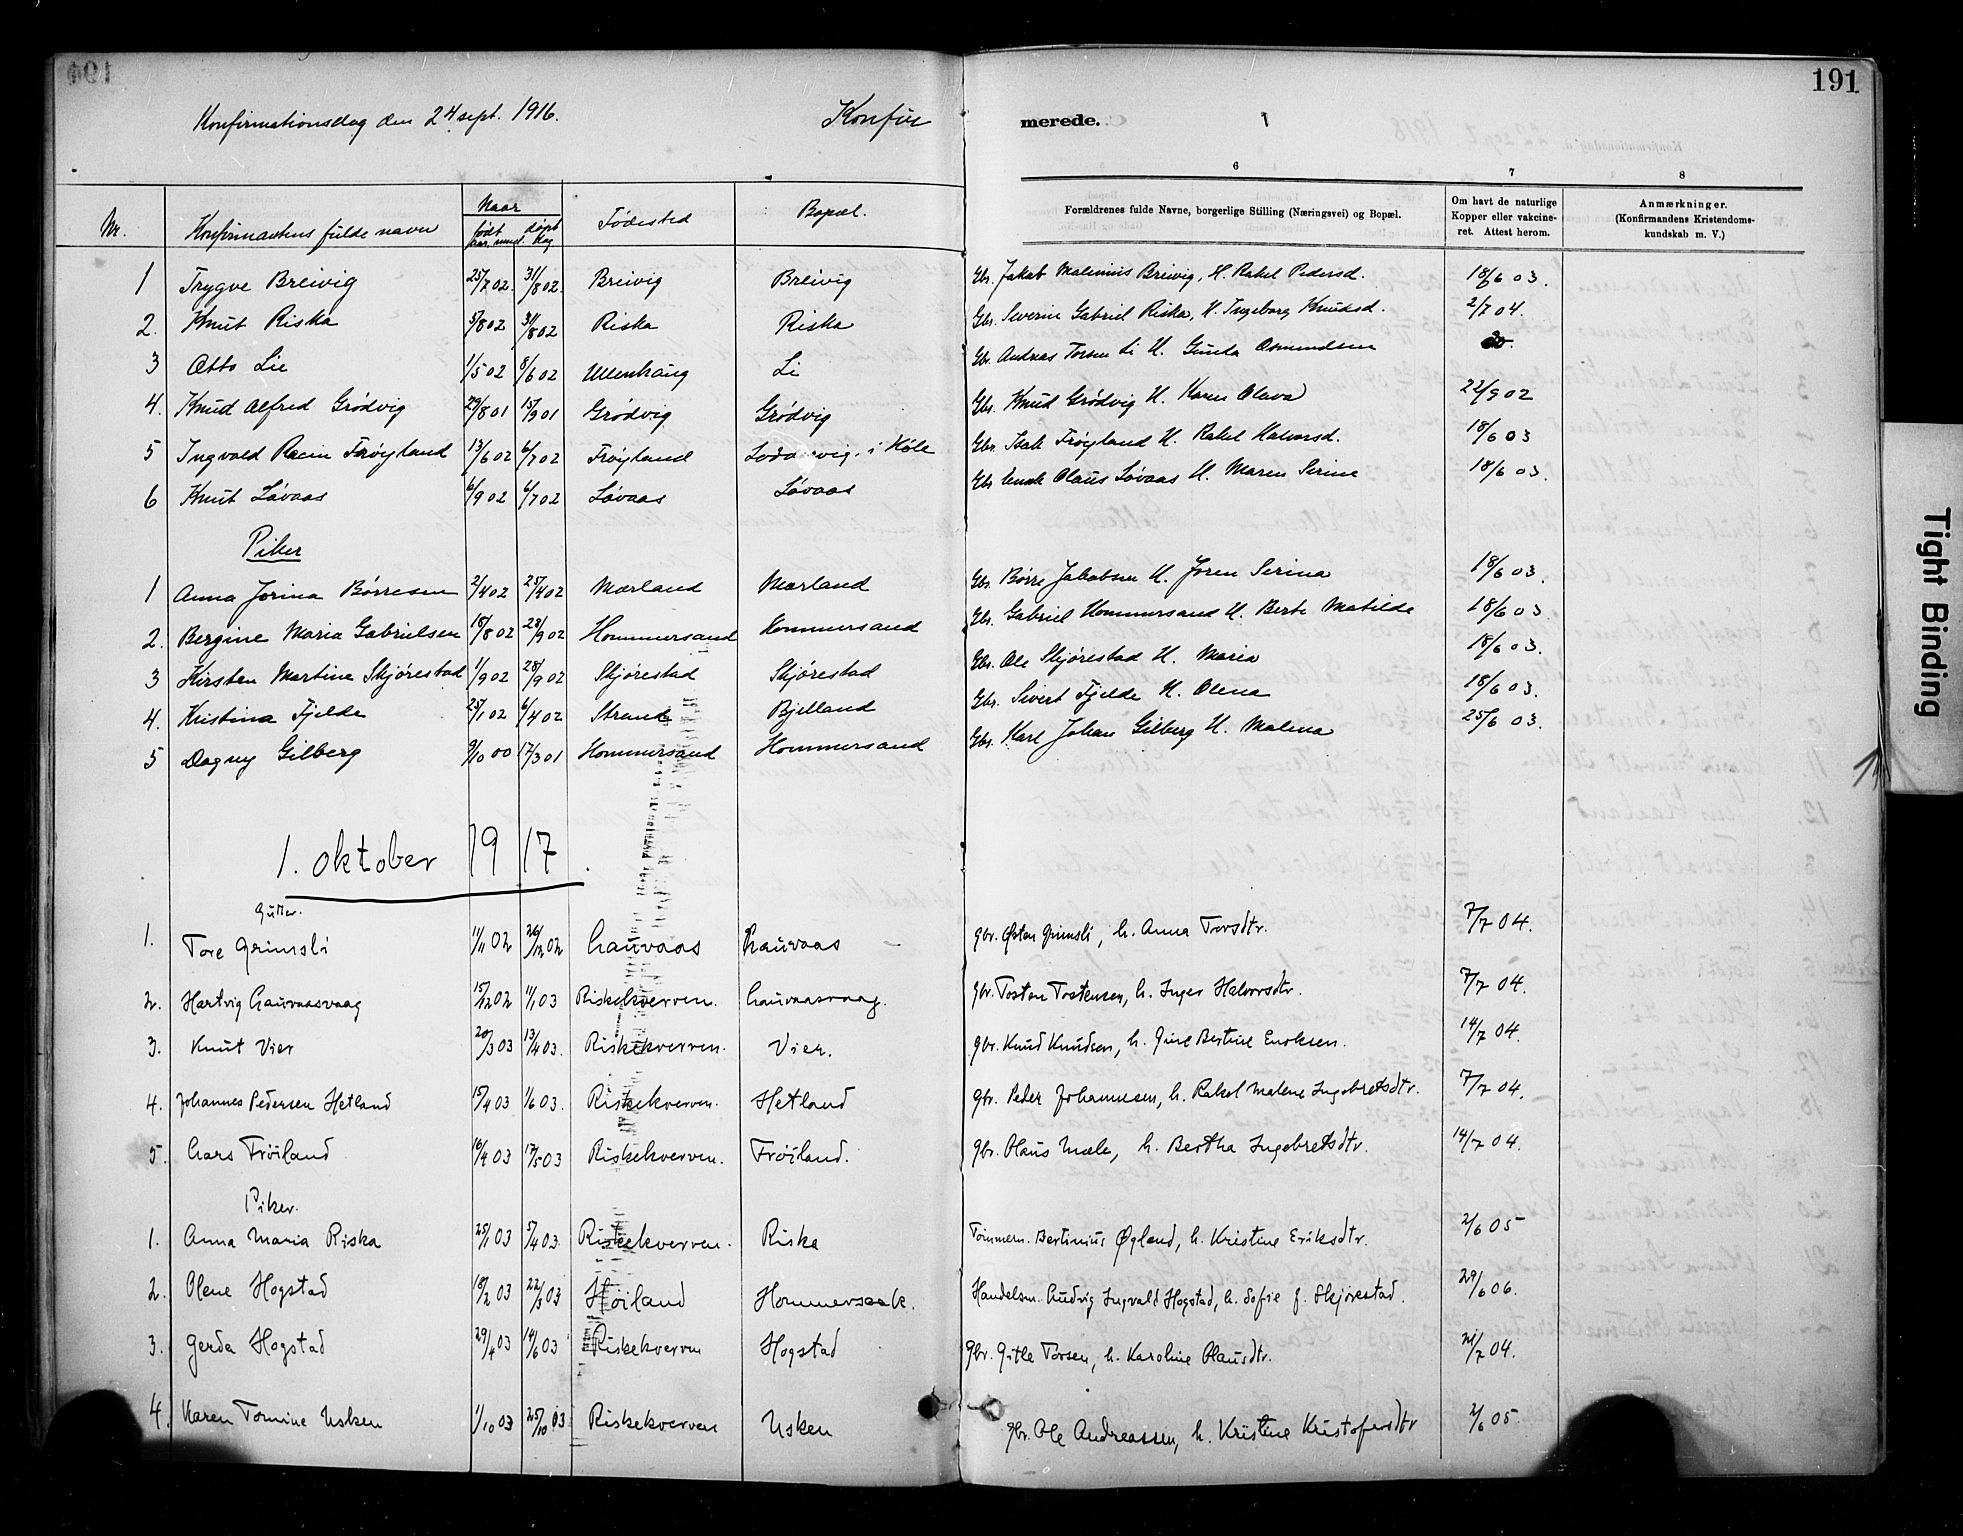 191
Konfirmationsdag den 24 sept. 1916.
Konfir merede.
6 7 8
Nr. Konfirmantens fulde navn Naar født aar, mnd. døpt dag Fødested Bopæl. Forældrenes fulde Navne, borgerlige Stilling (Næringsvei) og Bopæl. Om havt de naturlige Kopper eller vakcineret. Attest herom. Anmærkninger. (Konfirmandens Kristendomskundskab m. V.)
1 Trygve Breivig 25/7 02. 31/8 02. Breivig Breivig Gbr. Jakob Malinius Breivig, H. Rakel Pedersd. 18/6 03.
2. Knut Riska 5/8 02 31/8 02 Riska Riska Gbr. Severin Gabriel Riska, H. Ingeborg Knudsd. 2/7 04.
3 Otto Lie 1/5 02 8/6 02 Ullenhaug Li Gbr. Andreas Torsen Li H. Gunla Osmundsen
4. Knud Alfred Grødvig 29/8 01 15/9 01 Grødvig Grødvig Gbr. Knud Grødvig H. Karen Olava 22/9 02
5 Ingvald Frøyland 13/6 02 6/7 02 Frøyland i Høle Gbr. Isak Frøyland H. Rakel Halvorsd. 18/6 03
6 Knut Løvaas 6/9 02 6/7 02 Løvaas Løvaas Gbr Olaus Løvaas H. Maren Serine 18/6 03.
Piker
1 Anna Jorina Børresen 2/4 02 25/4 02 Mærland Mærland Gbr. Børre Jakobsen H. Joren Serina 18/6 03.
2. Bergine Maria Gabrielsen 18/8 02 28/9 02 Hommersand Hommersand Gbr. Gabriel Hommersand H. Berte Matilde 18/6 03
3 Kirsten Martine Skjørestad 1/9 02 28/9 02 Skjørestad Skjørestad Gbr. Ole Skjørestad H. Maria 18/6 03.
4. Kristina Fjelde 25/1 02 6/4 02 Strand Bjelland Gbr. Sivert Fjelde H. Olena 18/6 03.
5 Dagny Gilberg 9/10 00 17/3 01 Hommersand Hommersand Gbr. Karl Johan Gilberg H. Malena 25/6 03.
1. oktober 1917.
Gutter.
1. Tore Grimsli 11/11 02 26/12 02 Lauvaas Lauvaas gbr. Østen Grimsli, h. Anna Torsdtr. 7/7 04.
2. Hartvig Lauvaasvaag 15/12 02 11/1 03 Riskekverven. Lauvaasvaag. gbr. Tosten Tostensen, h. Inger Halvorsdtr. 7/7 04.
3. Knut Vier 20/3 03 13/4 03. Riskekverven. Vier. gbr. Knud Knudsen, h. Gine Bertine Enoksen. 14/7 04.
4. Johannes Pedersen Hetland 15/4 03 1/6 03. Riskekverven. Hetland gbr. Peder Johannesen, h. Rakel Malene Ingebretsdtr. 7/7 04.
5. Lars Frøiland 16/4 03 17/5 03 Riskekverven. Frøiland. gbr. Olaus Mæle, h. Bertha Ingebretsdtr. 14/7 04.
Piker.
1. Anna Maria Riska 25/1 03 5/4 03. Riskekverven. Riska Tømmerm. Bertinius Øgland, h. Kristine Eriksdtr. 2/6 05
2. Olene Hogstad 18/2 03 22/3 03 Høiland Hommersak. Handelsm. Ludvig Ingvald Hogstad, h. Sofie f. Skjørestad. 29/6 06.
3. Gerda Hogstad 29/4 03 14/6 03 Riskekverven Hogstad gbr. Gitle Torsen, h. Karoline Olausdtr. 21/7 04.
4. Karen Tomine Usken 1/10 03 25/10 03 Riskekverven Usken gbr. Ole Andreassen, h. Kristine Kristofersdtr 2/6 05.
Tight Binding